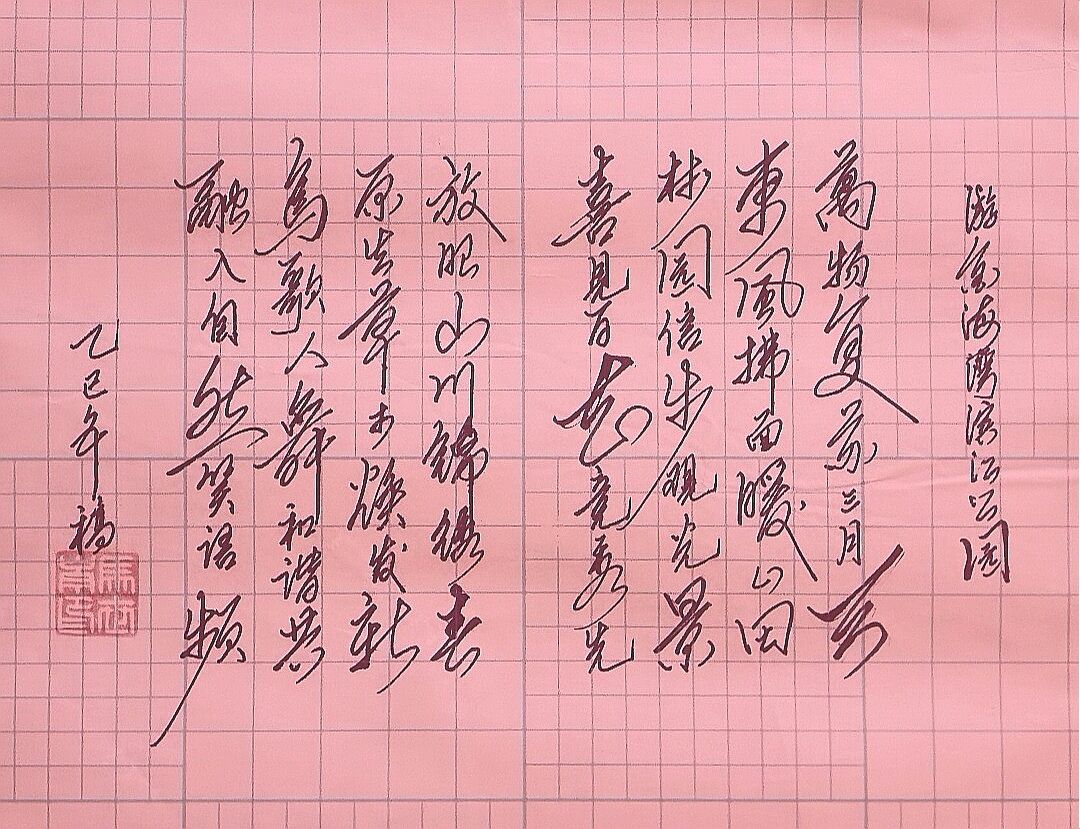 游金海灣滨江公园
萬物复苏三月天
東風拂面暖山田
林园信步观光景
喜見百花竞秀先
放眼山川锦绣春
原生草木焕发新
鸟歌人舞和谐共
融入自然笑语频
乙巳年稿